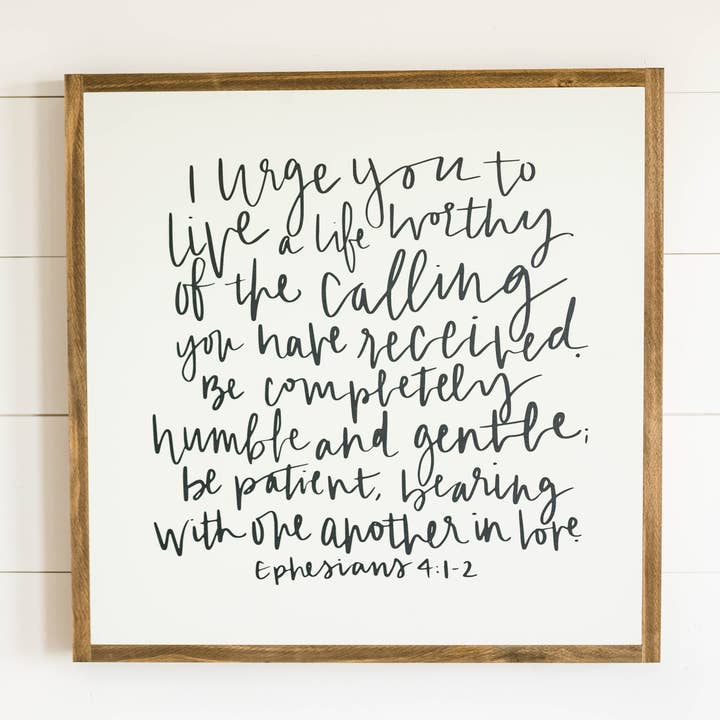 I urge you to
live a life worthy
of the calling
you have received.
Be completely
humble and gentle;
be patient, bearing
with one another in love.
Ephesians 4:1-2